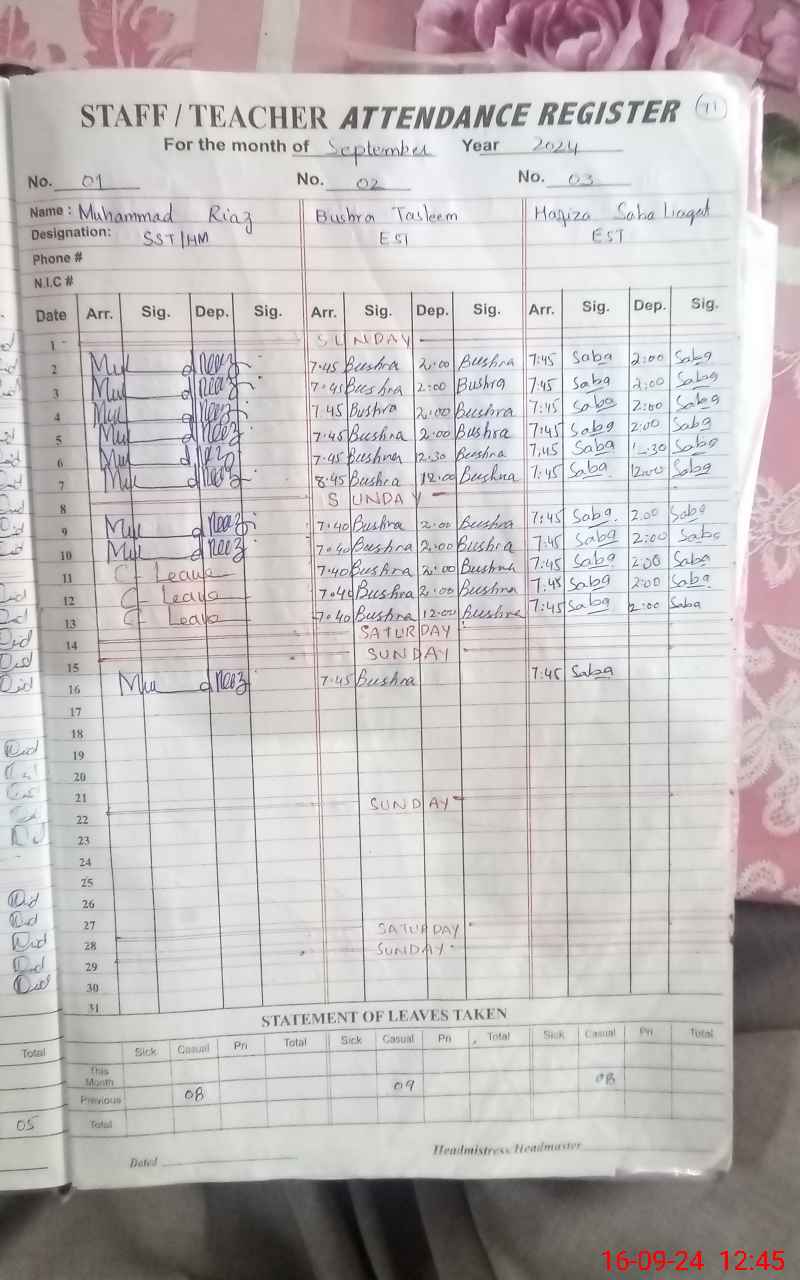 STAFF / TEACHER ATTENDANCE REGISTER 71
For the month of September Year 2024
No. 01 No. 02 No. 03
Name : Muhammad Riaz Bushra Tasleem Hafiza Saba Liaqat
Designation: SST/HM EST EST
Phone #
N.I.C #
Date Arr. Sig. Dep. Sig. Arr. Sig. Dep. Sig. Arr. Sig. Dep. Sig.
1 SUNDAY
2 7:45 Bushra 2:00 Bushra 7:45 Saba 2:00 Saba
3 7:45 Bushra 2:00 Bushra 7:45 Saba 2:00 Saba
4 7:45 Bushra 2:00 Bushra 7:45 Saba 2:00 Saba
5 7:45 Bushra 2:00 Bushra 7:45 Saba 2:00 Saba
6 7:45 Bushra 12:30 Bushra 7:45 Saba Saba
7 8:45 Bushra 12:00 Bushra 7:45 Saba 12:00 Saba
8 SUNDAY
9 7:40 Bushra 2:00 Bushra 7:45 Saba 2:00 Saba
10 7:40 Bushra 2:00 Bushra 7:45 Saba 2:00 Saba
11 Leave 7:40 Bushra 2:00 Bushra 7:45 Saba 2:00 Saba
12 Leave 7:40 Bushra 2:00 Bushra 7:45 Saba 2:00 Saba
13 Leave 7:40 Bushra 12:00 Bushra 7:45 Saba 2:00 Saba
14 SATURDAY
15 SUNDAY
16 7:45 Bushra 7:45 Saba
17
18
19
20
21
22 SUNDAY
23
24
25
26
27
28 SATURDAY
29 SUNDAY
30
31
STATEMENT OF LEAVES TAKEN
Sick Casual Pri Total Sick Casual Pri Total Sick Casual Pri Total
This Month
Previous 08 09 08
Total
Dated Headmistress/Headmaster
Total
05
16-09-24 12:45